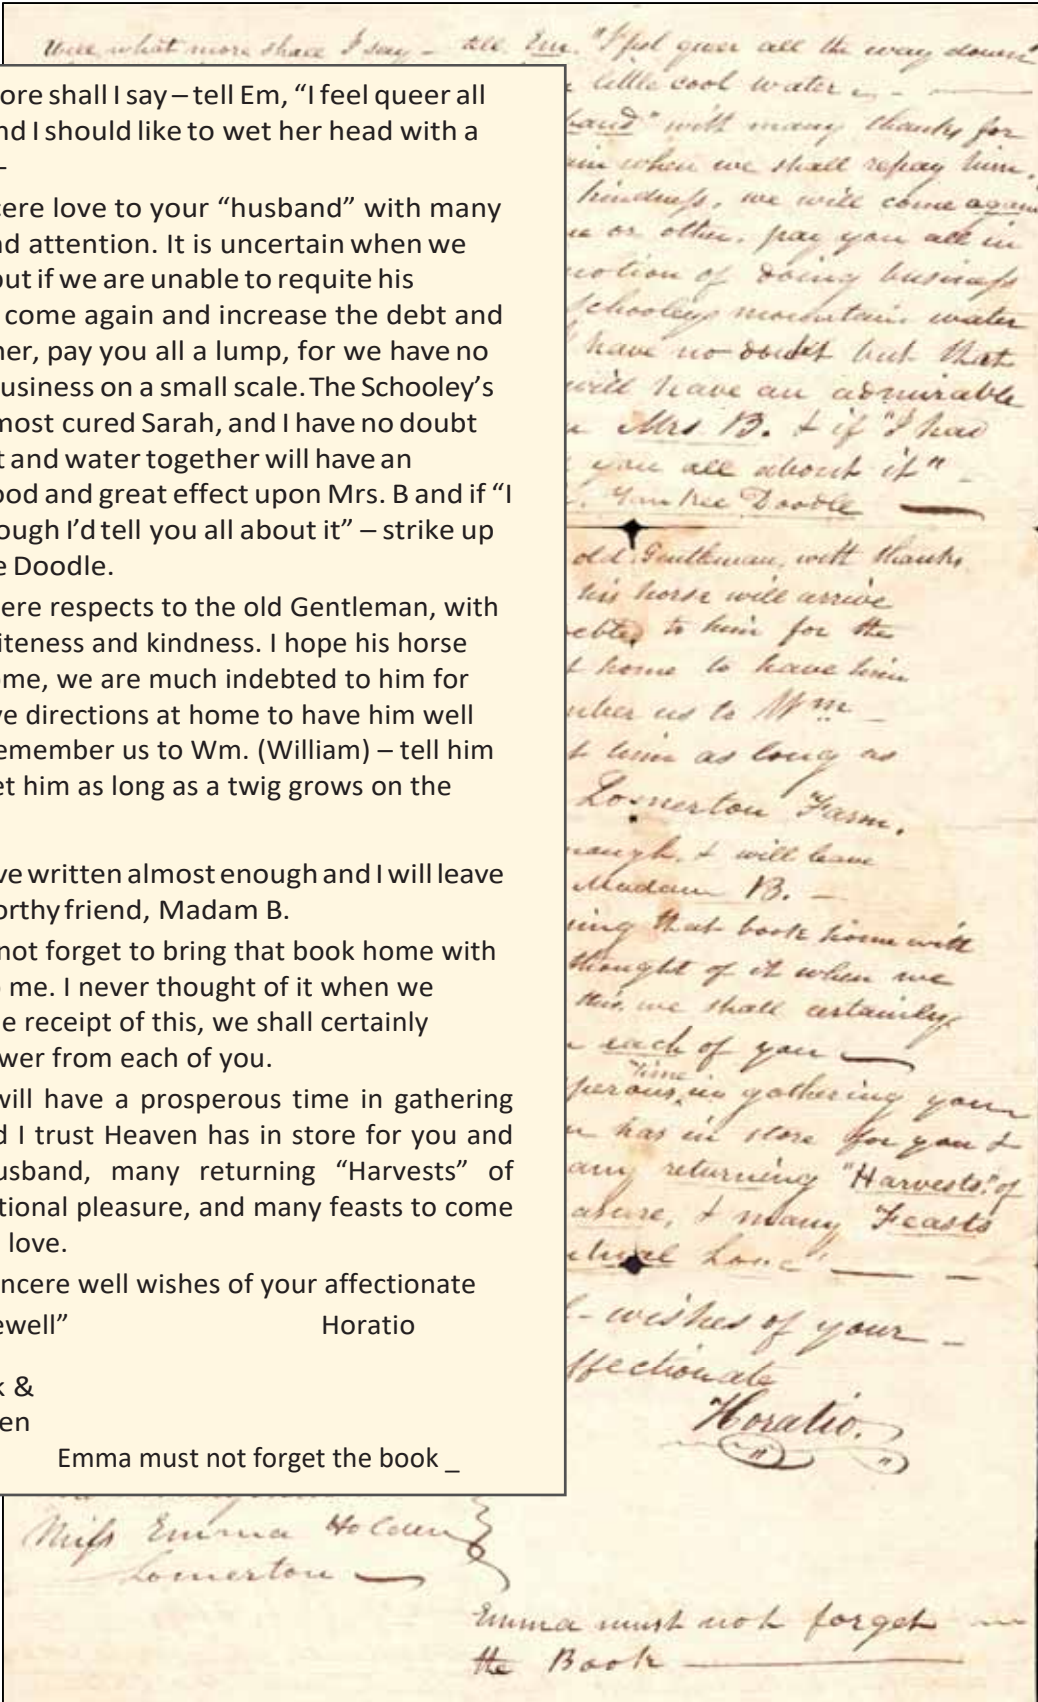 Well, what more shall I say – tell Em. "I feel queer all the way down"
little cool water
ore shall I say – tell Em, “I feel queer all
nd I should like to wet her head with a
–
cere love to your “husband” with many
nd attention. It is uncertain when we
but if we are unable to requite his
come again and increase the debt and
her, pay you all a lump, for we have no
business on a small scale. The Schooley’s
most cured Sarah, and I have no doubt
t and water together will have an
ood and great effect upon Mrs. B and if “I
ough I’d tell you all about it” – strike up
e Doodle.
ere respects to the old Gentleman, with
iteness and kindness. I hope his horse
ome, we are much indebted to him for
ve directions at home to have him well
emember us to Wm. (William) – tell him
et him as long as a twig grows on the
ve written almost enough and I will leave
orthy friend, Madam B.
not forget to bring that book home with
o me. I never thought of it when we
e receipt of this, we shall certainly
wer from each of you.
will have a prosperous time in gathering
d I trust Heaven has in store for you and
usband, many returning “Harvests” of
tional pleasure, and many feasts to come
love.
incere well wishes of your affectionate
ewell” Horatio
k &
en
Emma must not forget the book _
and" with many thanks for
in when we shall repay him,
kindness, we will come again
e or other, pay you all in
notion of doing business
Schooleys mountain water
have no doubt but that
will have an admirable
Mrs B. & if "I had
you all about it" –
Yankee Doodle —
old Gentleman, with thanks
his horse will arrive
ebted to him for the
t home to have him
mber us to Wm –
t him as long as
Losnerton Farm.
nough, & will leave
Madam B. –
ing that book home with
thought of it when we
this, we shall certainly
each of you —
perous time in gathering your
n has in store for you &
any returning "Harvests" of
asure, & many Feasts
utual Love" — –
l-wishes of your –
ffectionate
Horatio.
Miss Emma Holden
Lomerton —
Emma must not forget
the Book —